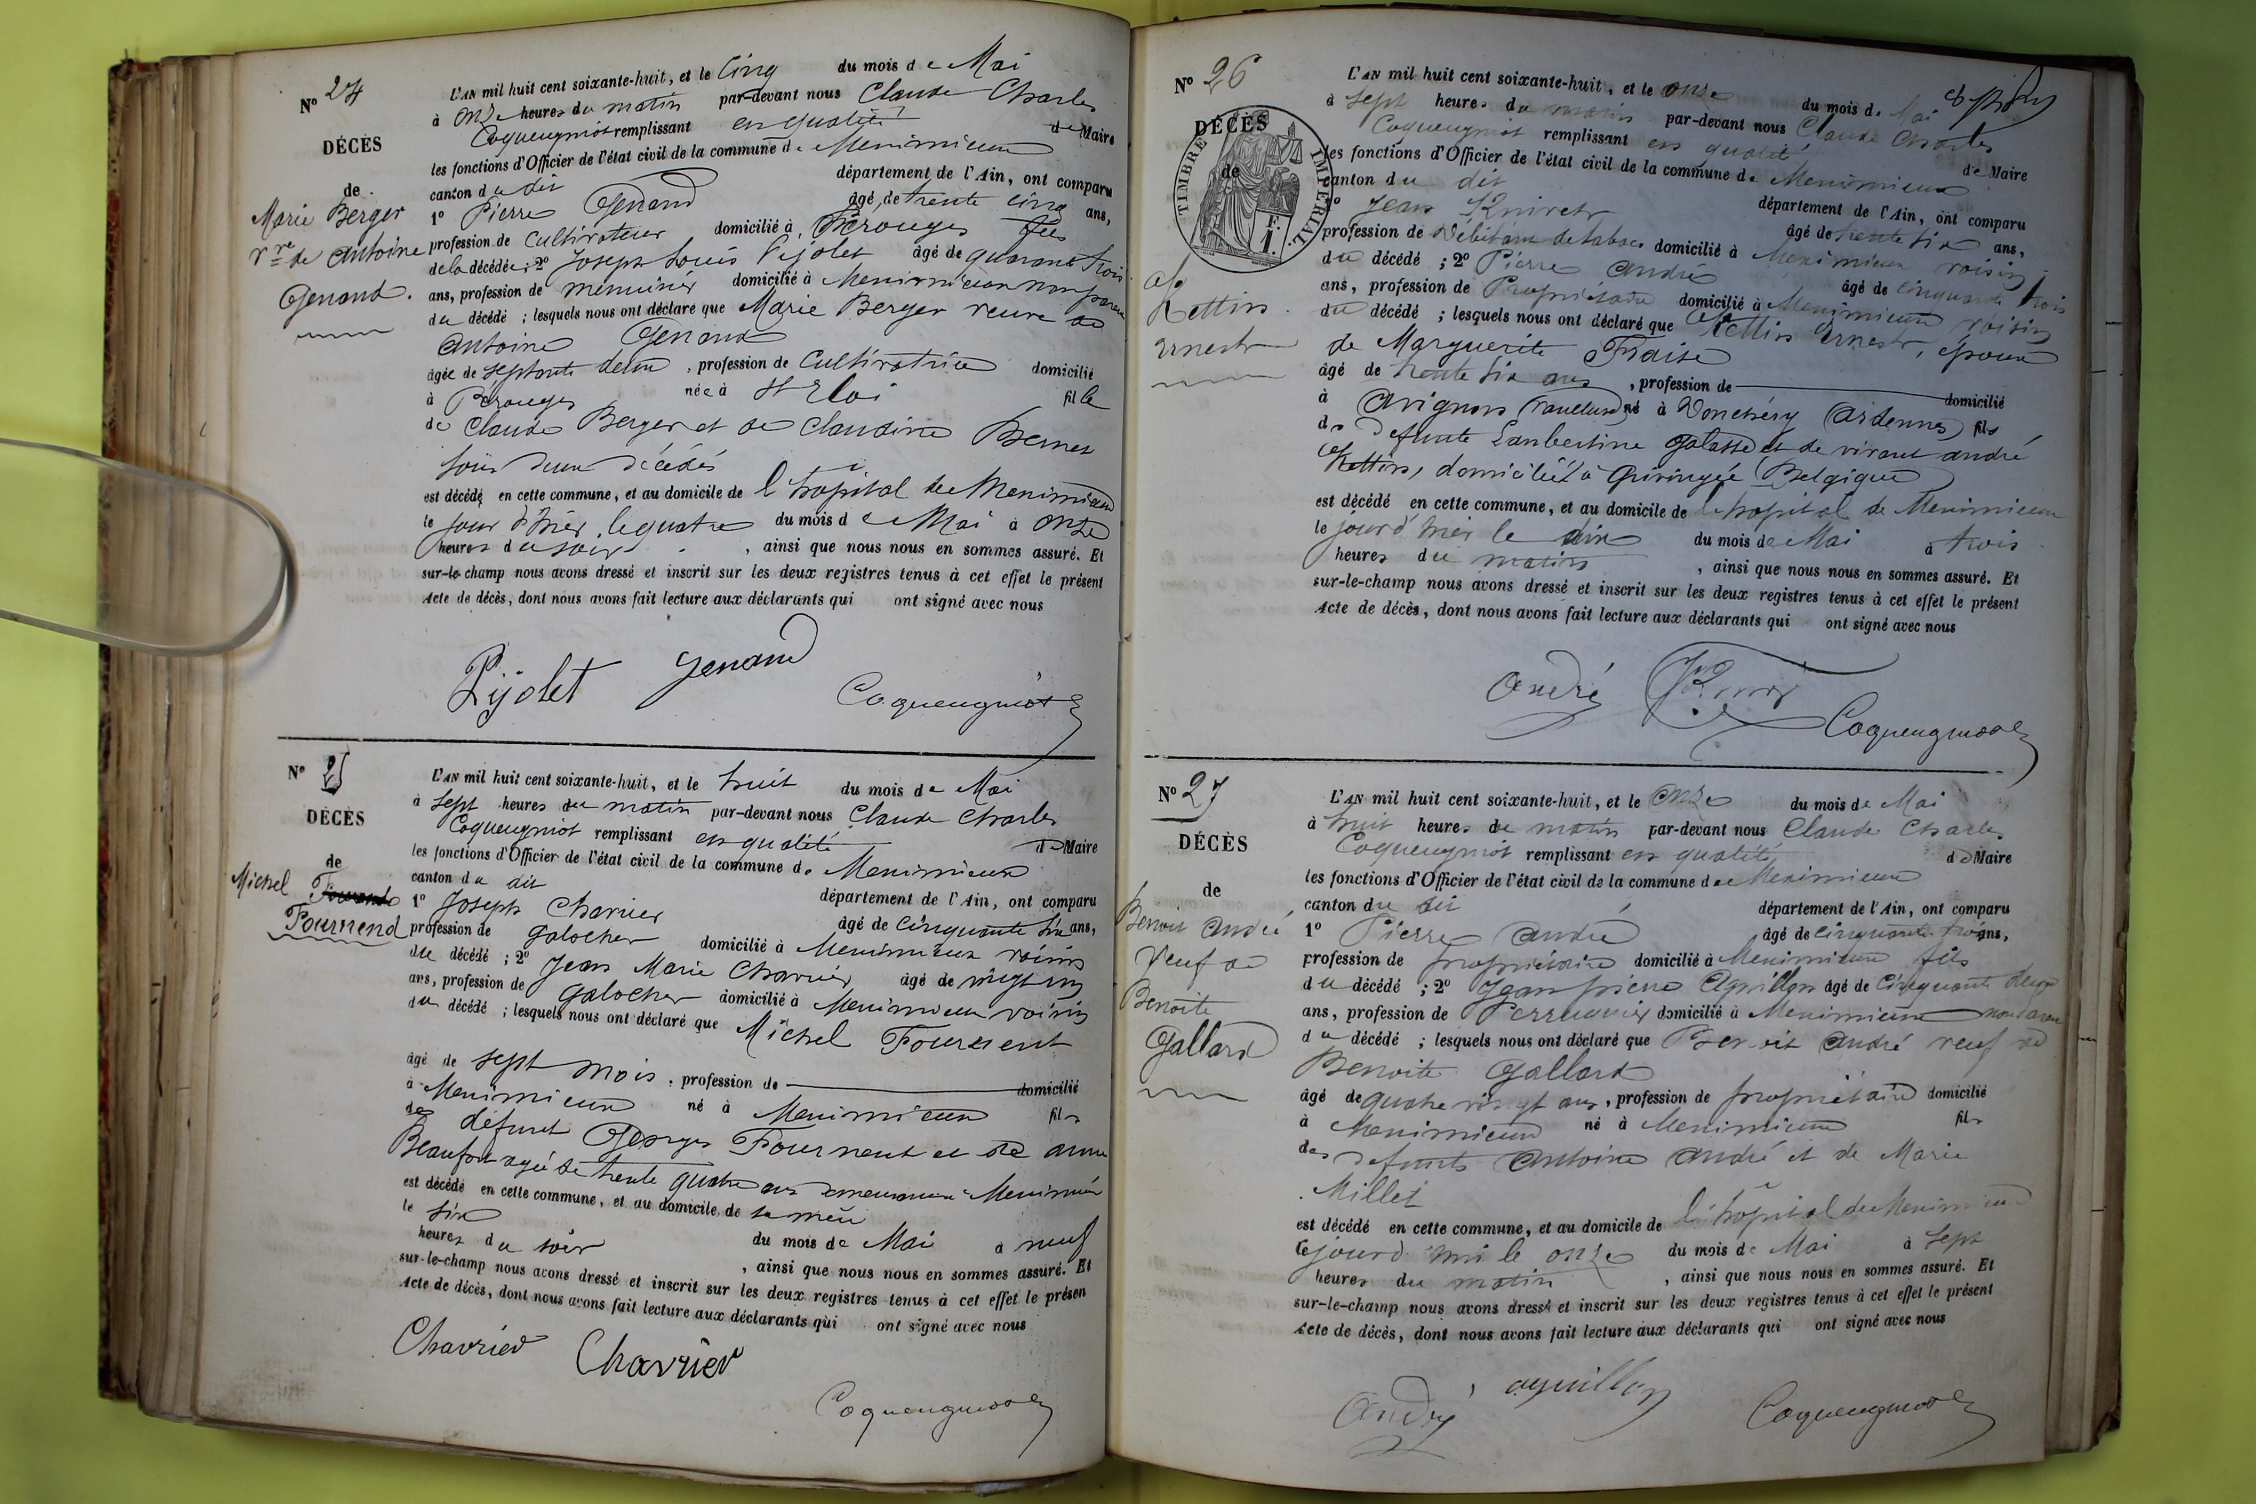 N° 24
DÉCÈS
de
Marie Berger
Vve de Antoine
Genand.
L'AN mil huit cent soixante-huit, et le Cinq du mois de Mai
à onze heures du matin par-devant nous Claude Charles
Coqueugniot remplissant en qualité de Maire
les fonctions d'Officier de l'état civil de la commune de Meximieux
canton du dit département de l'Ain, ont comparu
1° Pierre Genand âgé de trente cinq ans,
profession de Cultivateur domicilié à Pérouges fils
de la décédée ; 2° Joseph Louis Pijolet âgé de quarante trois
ans, profession de menuisier domicilié à Meximieux non parent
du décédé ; lesquels nous ont déclaré que Marie Berger veuve de
Antoine Genand
âgée de septante deux , profession de Cultivatrice domicilié
à Pérouges née à St Eloi fille
de Claude Berger et de Claudine Bernet
tous deux décédés
est décédé en cette commune, et au domicile de l'hôpital de Meximieux
le jour d'hier, le quatre du mois de Mai à onze
heures du soir , ainsi que nous nous en sommes assuré. Et
sur-le-champ nous avons dressé et inscrit sur les deux registres tenus à cet effet le présent
Acte de décès, dont nous avons fait lecture aux déclarants qui ont signé avec nous
Pijolet Genand
Coqueugniot
N° 25
DÉCÈS
de
Michel
Fournend
L'AN mil huit cent soixante-huit, et le huit du mois de Mai
à sept heures du matin par-devant nous Claude Charles
Coqueugniot remplissant en qualité de Maire
les fonctions d'Officier de l'état civil de la commune de Meximieux
canton du dit département de l'Ain, ont comparu
1° Joseph Charvier âgé de cinquante six ans,
profession de galocher domicilié à Meximieux voisin
du décédé ; 2° Jean Marie Charvier âgé de vingt un
ans, profession de galocher domicilié à Meximieux voisin
du décédé ; lesquels nous ont déclaré que Michel Fournent
âgé de sept mois , profession de domicilié
à Meximieux né à Meximieux fils
de défunt Georges Fournent et de anne
Beaufort agée de trente quatre ans demeurant à Meximieux
est décédé en cette commune, et au domicile de sa mère
le six du mois de Mai à neuf
heures du soir , ainsi que nous nous en sommes assuré. Et
sur-le-champ nous avons dressé et inscrit sur les deux registres tenus à cet effet le présen
Acte de décès, dont nous avons fait lecture aux déclarants qui ont signé avec nous
Charvier Charvier
Coqueugniot
N° 26
DÉCÈS
de
TIMBRE IMPERIAL
F. 1.
Kettin
Ernest
L'AN mil huit cent soixante-huit, et le onze du mois de Mai
à sept heures du matin par-devant nous Claude Charles
Coqueugniot remplissant en qualité de Maire
les fonctions d'Officier de l'état civil de la commune de Meximieux
canton du dit département de l'Ain, ont comparu
1° Jean âgé de trente six ans,
profession de Débitant de tabac domicilié à Meximieux voisin
du décédé ; 2° Pierre André âgé de cinquante trois
ans, profession de Propriétaire domicilié à Meximieux voisin
du décédé ; lesquels nous ont déclaré que Kettin Ernest, époux
de Marguerite Fraise
âgé de trente six ans , profession de domicilié
à Avignon (Vaucluse) né à Donchéry (Ardennes) fils
de défunte Lambertine Galasse et de vivant andré
Kettin, domicilié à Grivingée (Belgique)
est décédé en cette commune, et au domicile de l'hopital de Meximieux
le jour d'hier le dix du mois de Mai à trois
heures du matin , ainsi que nous nous en sommes assuré. Et
sur-le-champ nous avons dressé et inscrit sur les deux registres tenus à cet effet le présent
Acte de décès, dont nous avons fait lecture aux déclarants qui ont signé avec nous
André
Coqueugniot
N° 27
DÉCÈS
de
Benoit André
Veuf de
Benoite
Gallard
L'AN mil huit cent soixante-huit, et le onze du mois de Mai
à huit heures de matin par-devant nous Claude Charles
Coqueugniot remplissant en qualité de Maire
les fonctions d'Officier de l'état civil de la commune de Meximieux
canton du dit département de l'Ain, ont comparu
1° Pierre André âgé de cinquante trois ans,
profession de propriétaire domicilié à Meximieux fils
du décédé ; 2° Jean pierre Aguillon âgé de Cinquante deux
ans, profession de Perruquier domicilié à Meximieux non parent
du décédé ; lesquels nous ont déclaré que Benoit André veuf de
Benoite Gallard
âgé de quatre vingt ans , profession de propriétaire domicilié
à Meximieux né à Meximieux fils
des défunts Antoine André et de Marie
Millet
est décédé en cette commune, et au domicile de l'hôpital de Meximieux
le jourd'hui le onze du mois de Mai à sept
heures du matin , ainsi que nous nous en sommes assuré. Et
sur-le-champ nous avons dressé et inscrit sur les deux registres tenus à cet effet le présent
Acte de décès, dont nous avons fait lecture aux déclarants qui ont signé avec nous
André aguillon
Coqueugniot